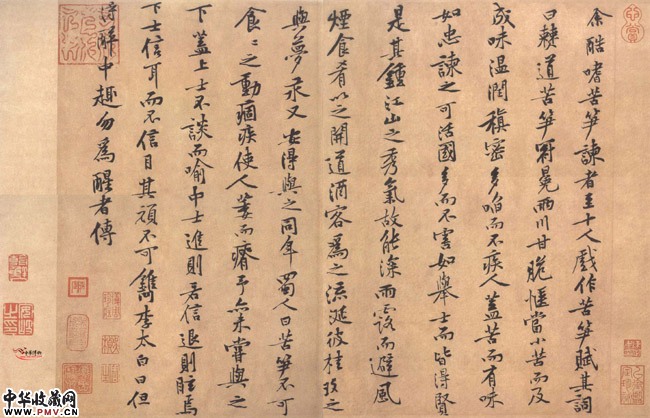 余酷嗜苦笋諫者至十人戲作苦笋賦其詞
曰僰道苦笋冠冕兩川甘脆愜當小苦而及
成味溫潤稹密多啗而不疾人蓋苦而有味
如忠諫之可活國多而不害如舉士而皆得賢
是其鍾江山之秀氣故能深雨露而避風
煙食肴以之開道酒客為之流涎彼桂玫之
與夢汞又安得與之同年蜀人曰苦笋不可
食〻之動痼疾使人萎而瘠予未嘗與之
下蓋上士不談而喻中士進則若信退則眩焉
下士信耳而不信目其頑不可鐫李太白曰但
得醉中趣勿為醒者傳
中华收藏网
www.PMV.cn